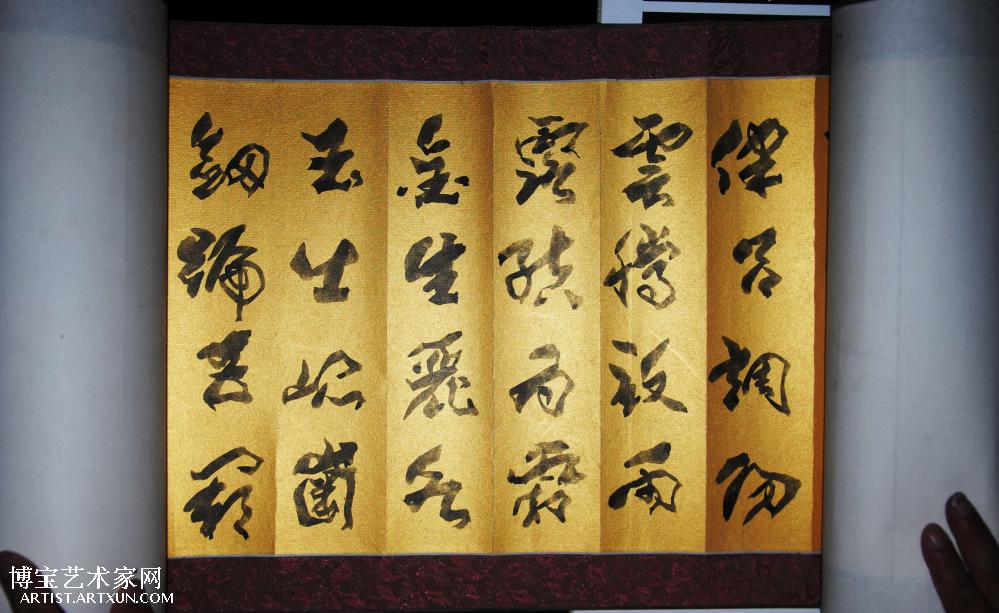 律呂調陽
雲騰致雨
露結為霜
金生麗水
玉出崐崗
劍號巨闕
博宝艺术家网
ARTIST.ARTXUN.COM